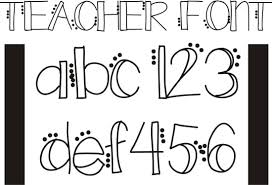 TEACHER FONT
abc 123
def 456